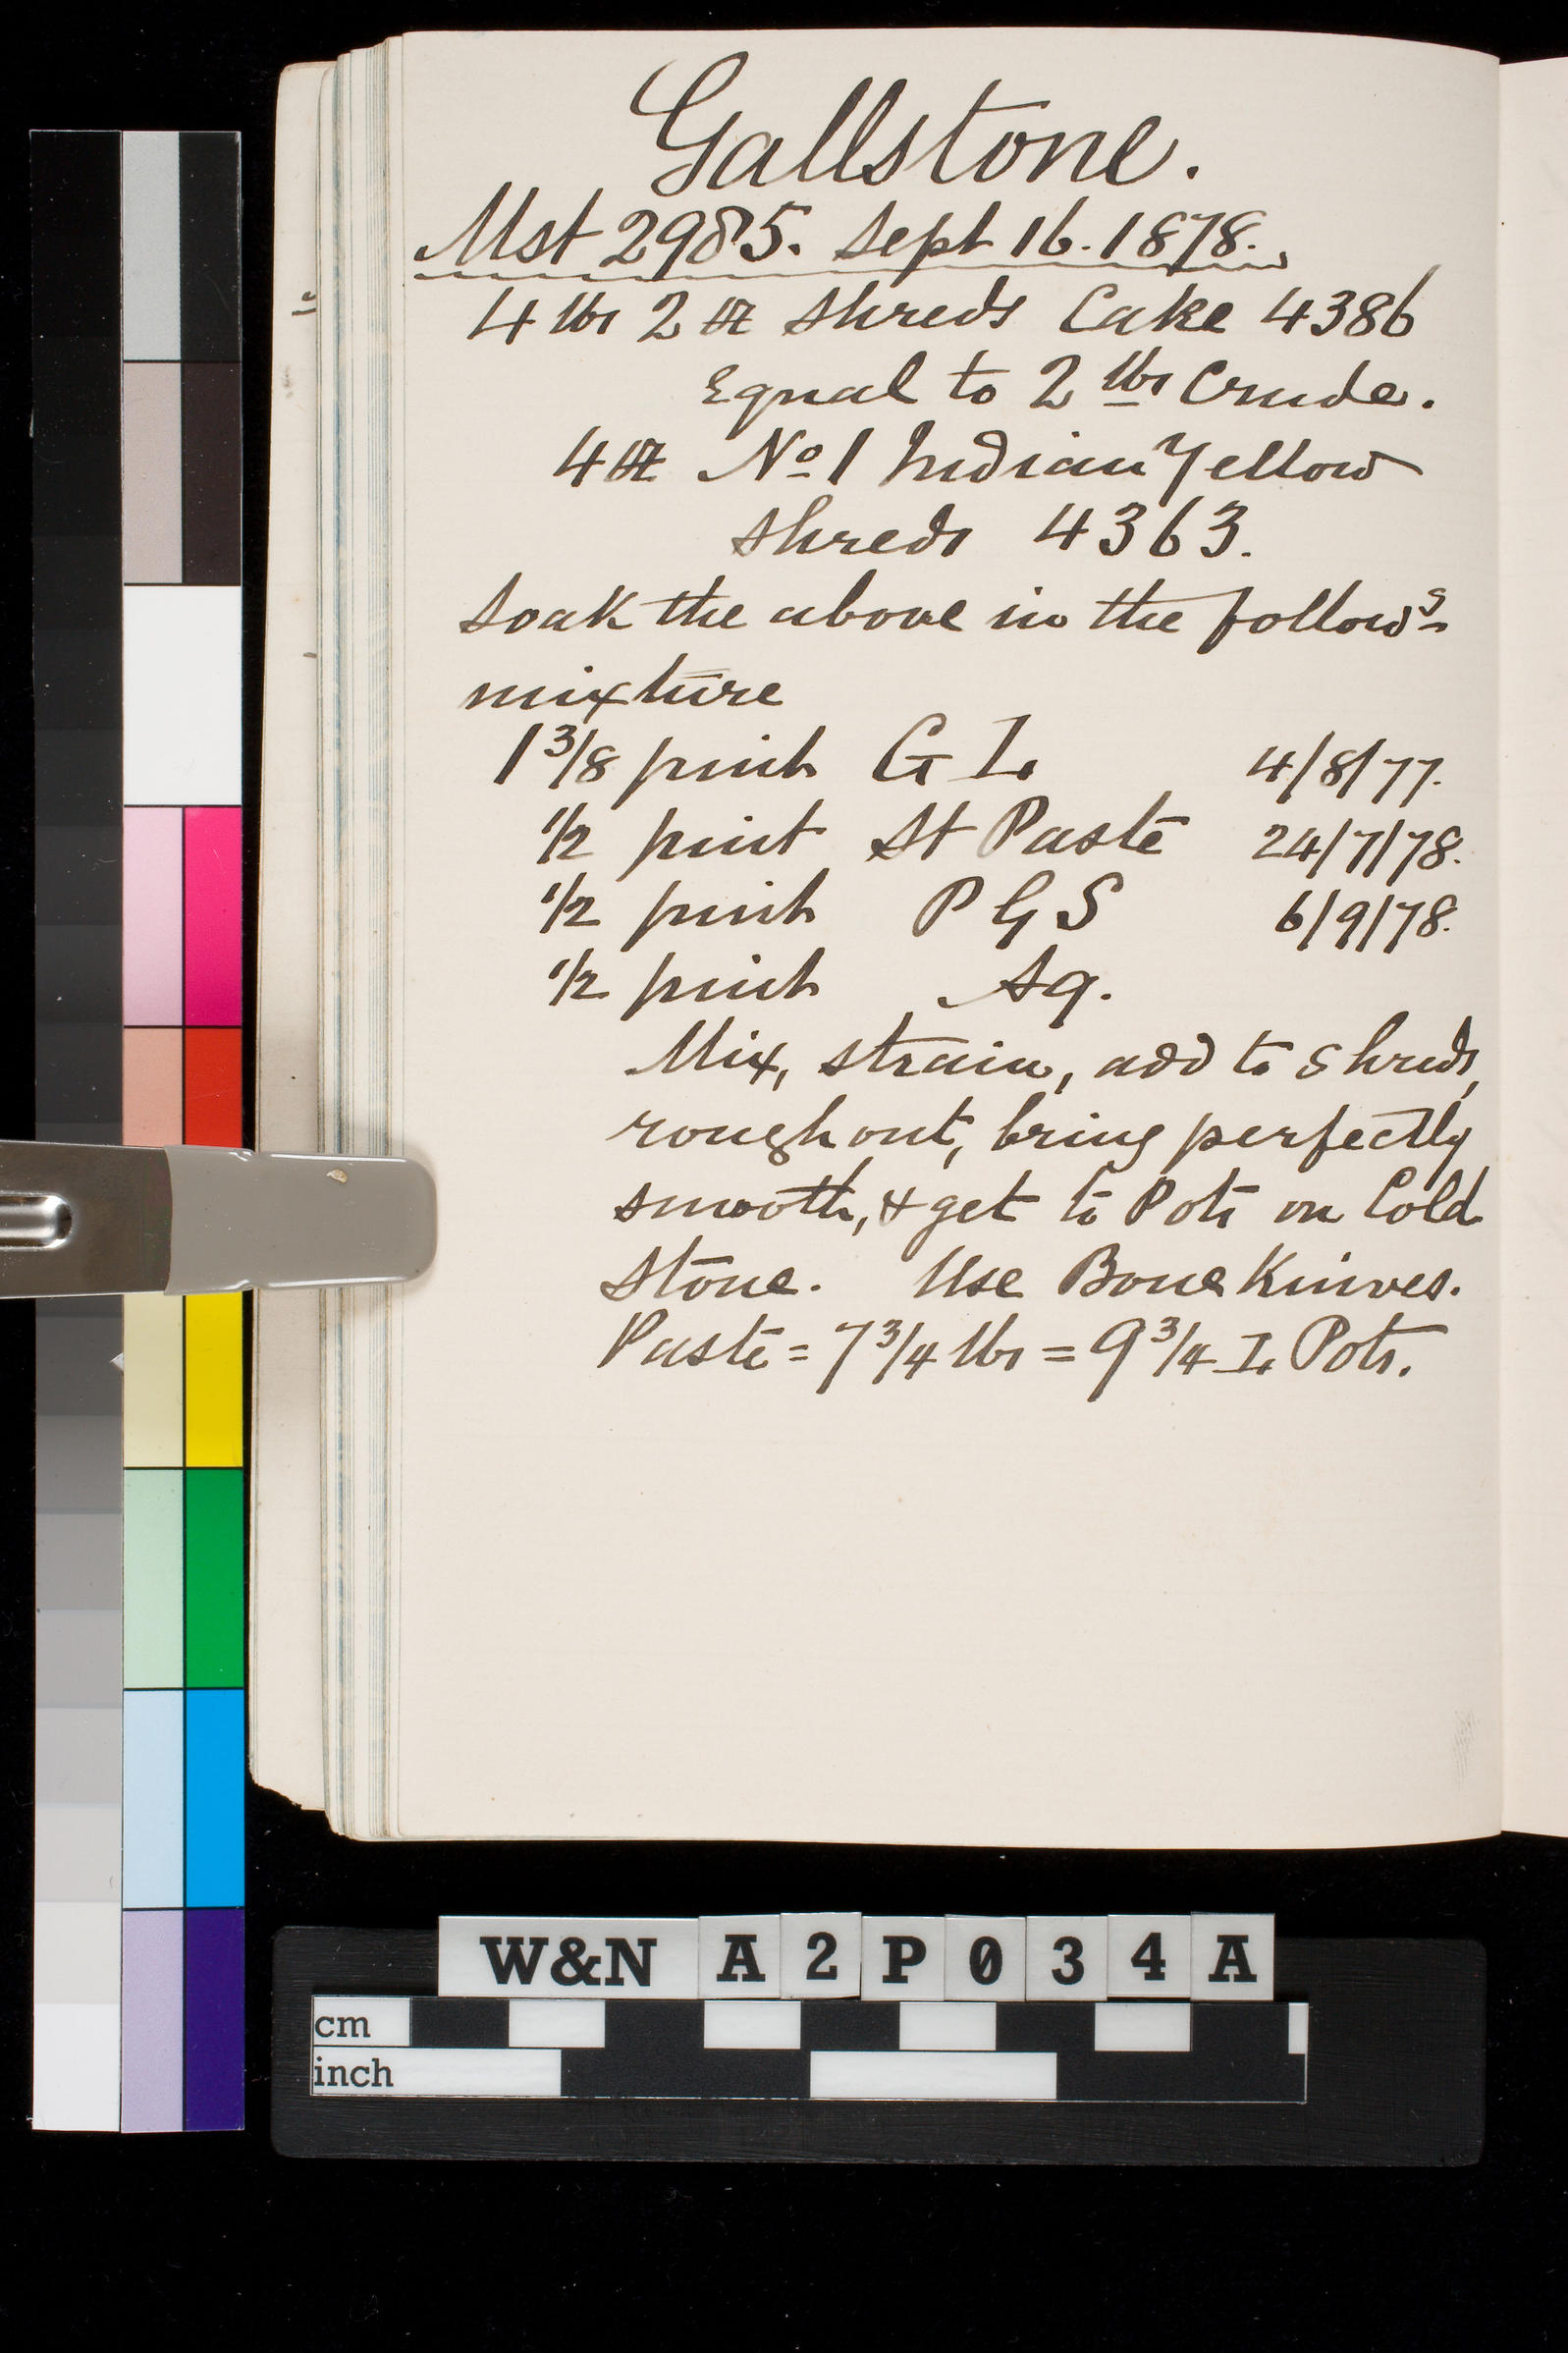 Gallstone.
Mst 2985. Sept 16. 1878.
4 lbs 2 oz Shreds Cake 4386
Equal to 2 lbs Crude.
4 oz No 1 Indian Yellow
Shreds 4363.
Soak the above in the follows
mixture
1 3/8 pint G L 4/8/77.
1/2 pint St Paste 24/7/78.
1/2 pint P G S 6/9/78.
1/2 pint Aq.
Mix, strain, add to shreds,
rough out, bring perfectly
smooth, & get to Pots on Cold
Stone. Use Bone Knives.
Paste = 7 3/4 lbs = 9 3/4 L Pots.
W&N A2P034A
cm
inch